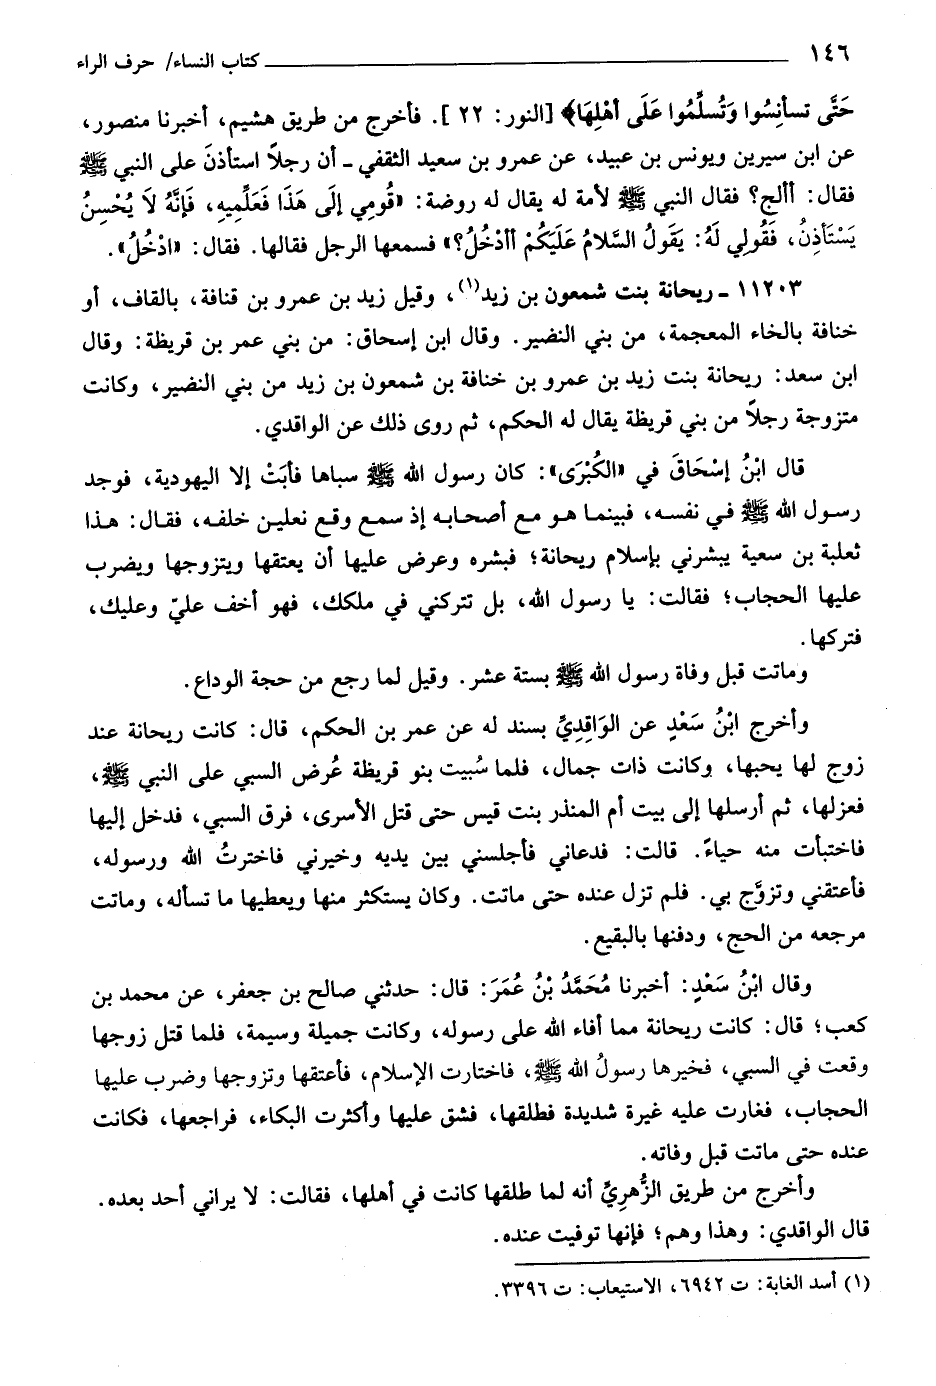 ١٤٦ كتاب النساء/ حرف الراء
حَتَّى تسأنِسُوا وَتُسلِّمُوا عَلَى أهْلِهَا﴾ [النور: ٢٢ ]. فأخرج من طريق هشيم، أخبرنا منصور،
عن ابن سيرين ويونس بن عبيد، عن عمرو بن سعيد الثقفي ـ أن رجلاً استأذنَ على النبي ﷺ
فقال: أألج؟ فقال النبي ﷺ لأمة له يقال له روضة: «قُومِي إلَى هَذَا فَعَلِّمِيهِ، فَإنَّهُ لاَ يُحْسِنُ
يَسْتَأذِنُ، فَقُولِي لَهُ: يَقولُ السَّلامُ عَلَيكُمْ أأدْخُلُ؟» فسمعها الرجل فقالها. فقال: «ادْخُلُ».
١١٢٠٣ ـ ريحانة بنت شمعون بن زيد(١)، وقيل زيد بن عمرو بن قنافة، بالقاف، أو
خنافة بالخاء المعجمة، من بني النضير. وقال ابن إسحاق: من بني عمر بن قريظة: وقال
ابن سعد: ريحانة بنت زيد بن عمرو بن خنافة بن شمعون بن زيد من بني النضير، وكانت
متزوجة رجلاً من بني قريظة يقال له الحكم، ثم روى ذلك عن الواقدي.
قال ابْنُ إسْحَاقَ في «الكُبْرَى»: كان رسول الله ﷺ سباها فأبَتْ إلا اليهودية، فوجد
رسول الله ﷺ في نفسه، فبينما هو مع أصحابه إذ سمع وقع نعلين خلفه، فقال: هذا
ثعلبة بن سعية يبشرني بإسلام ريحانة؛ فبشره وعرض عليها أن يعتقها ويتزوجها ويضرب
عليها الحجاب؛ فقالت: يا رسول الله، بل تتركني في ملكك، فهو أخف عليّ وعليك،
فتركها.
وماتت قبل وفاة رسول الله ﷺ بستة عشر. وقيل لما رجع من حجة الوداع.
وأخرج ابْنُ سَعْدٍ عن الوَاقِدِيِّ بسند له عن عمر بن الحكم، قال: كانت ريحانة عند
زوج لها يحبها، وكانت ذات جمال، فلما سُبيت بنو قريظة عُرض السبي على النبي ﷺ،
فعزلها، ثم أرسلها إلى بيت أم المنذر بنت قيس حتى قتل الأسرى، فرق السبي، فدخل إليها
فاختبأت منه حياءً. قالت: فدعاني فأجلسني بين يديه وخيرني فاخترتُ الله ورسوله،
فأعتقني وتزوَّج بي. فلم تزل عنده حتى ماتت. وكان يستكثر منها ويعطيها ما تسأله، وماتت
مرجعه من الحج، ودفنها بالبقيع.
وقال ابْنُ سَعْدٍ: أخبرنا مُحَمَّدُ بْنُ عُمَرَ: قال: حدثني صالح بن جعفر، عن محمد بن
كعب؛ قال: كانت ريحانة مما أفاء الله على رسوله، وكانت جميلة وسيمة، فلما قتل زوجها
وقعت في السبي، فخيرها رسولُ الله ﷺ، فاختارت الإسلام، فأعتقها وتزوجها وضرب عليها
الحجاب، فغارت عليه غيرة شديدة فطلقها، فشق عليها وأكثرت البكاء، فراجعها، فكانت
عنده حتى ماتت قبل وفاته.
وأخرج من طريق الزُّهرِيِّ أنه لما طلقها كانت في أهلها، فقالت: لا يراني أحد بعده.
قال الواقدي: وهذا وهم؛ فإنها توفيت عنده.
(١) أسد الغابة: ت ٦٩٤٢، الاستيعاب: ت ٣٣٩٦.